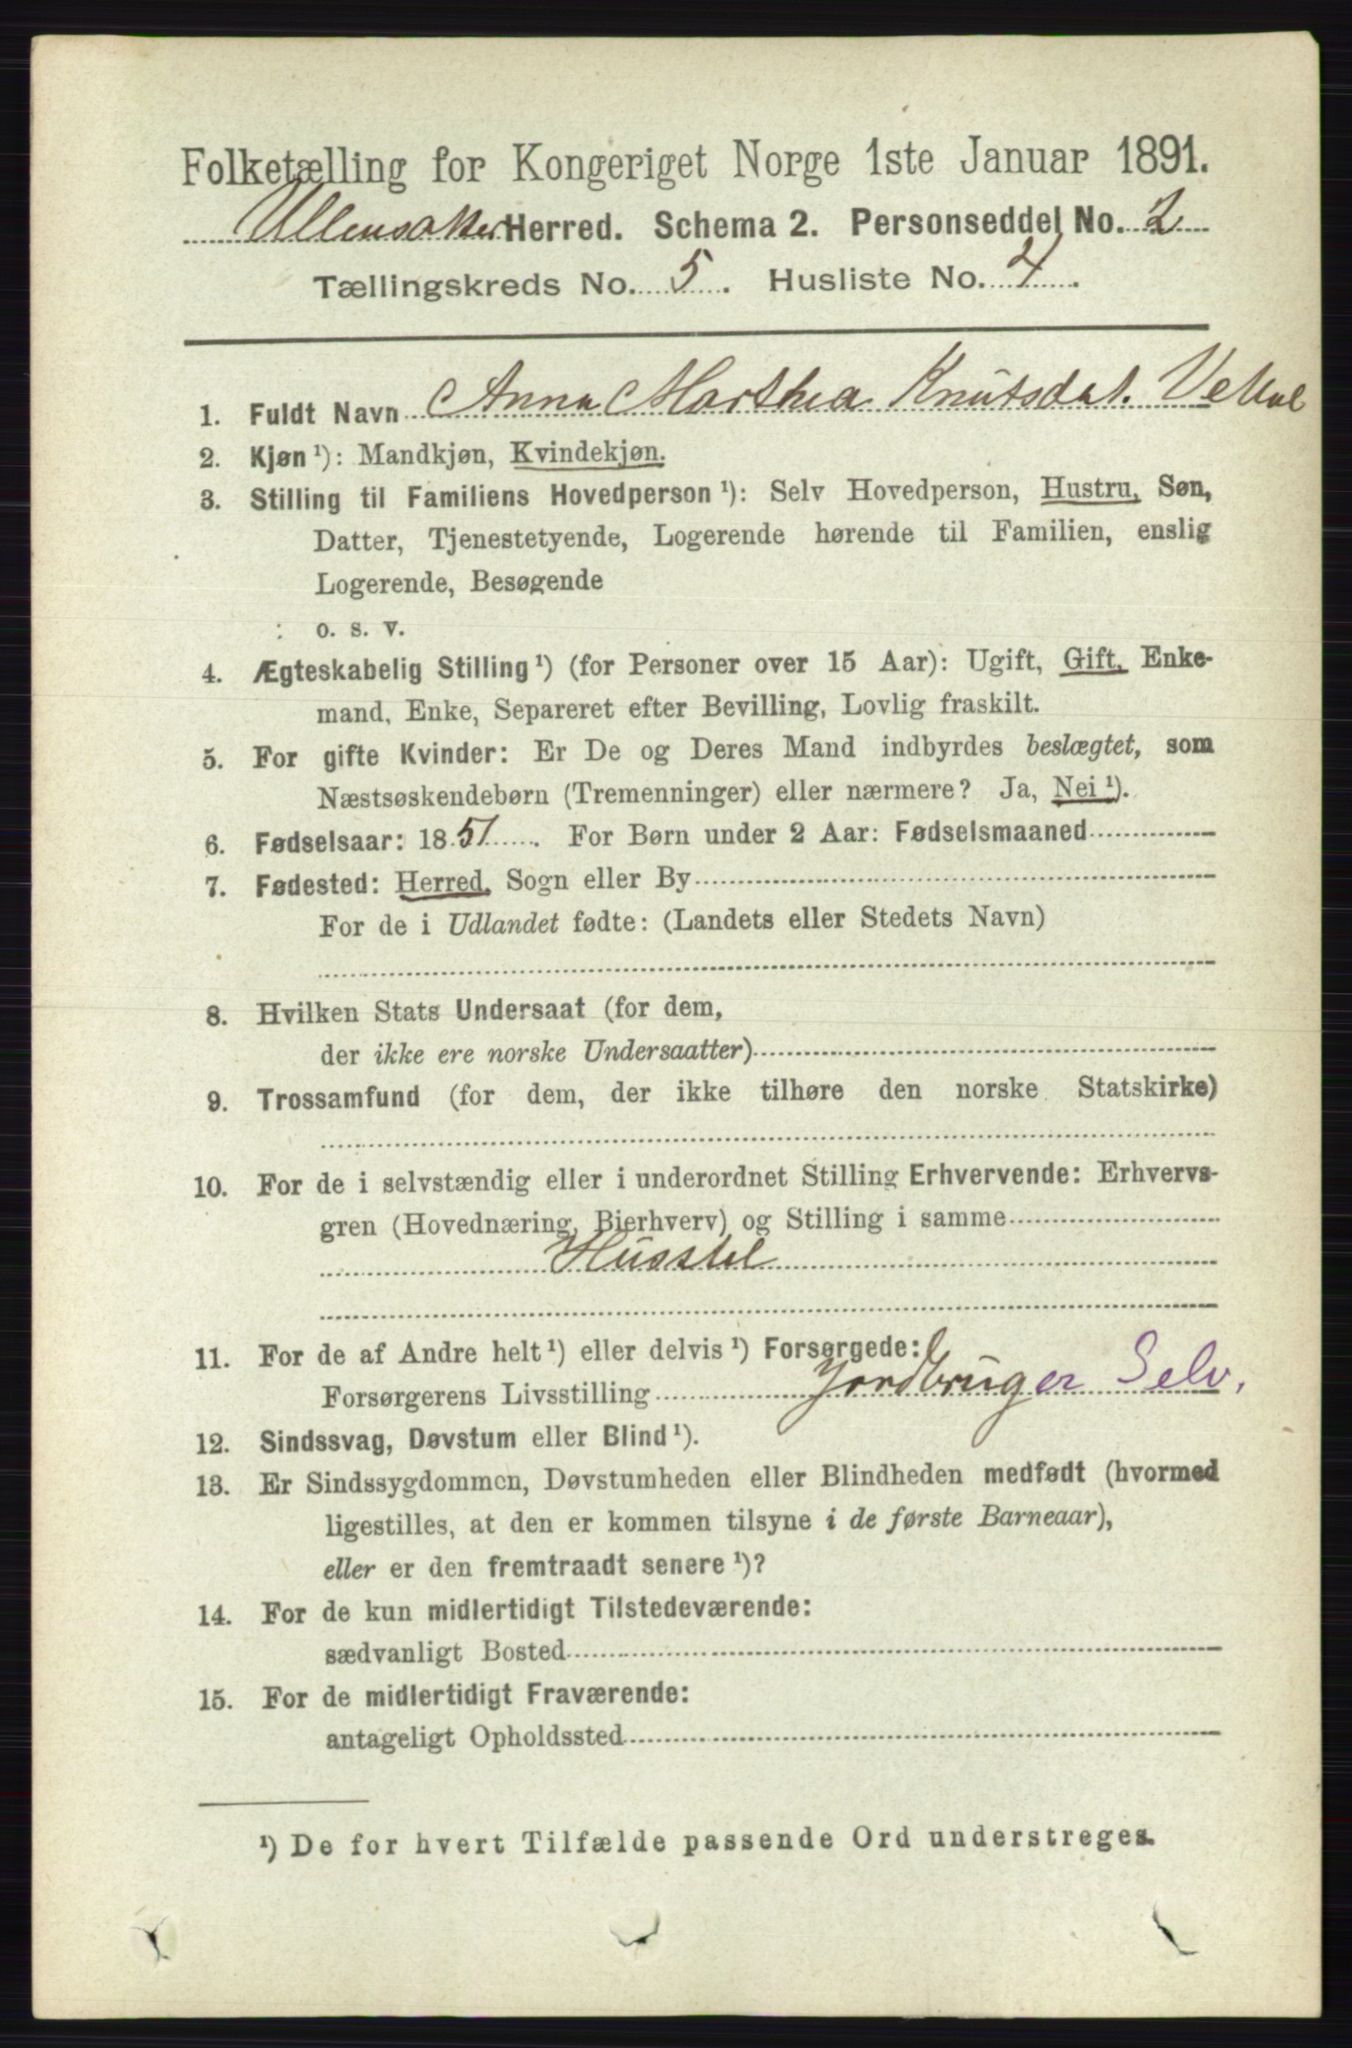 Folketælling for Kongeriget Norge 1ste Januar 1891.
Ullensaker Herred. Schema 2. Personseddel No. 2
Tællingskreds No. 5. Husliste No. 4.
1. Fuldt Navn Anna Marthea Knutsdat.
2. Kjøn ¹): Mandkjøn, Kvindekjøn.
3. Stilling til Familiens Hovedperson ¹): Selv Hovedperson, Hustru, Søn,
Datter, Tjenestetyende, Logerende hørende til Familien, enslig
Logerende, Besøgende
o. s. v.
4. Ægteskabelig Stilling ¹) (for Personer over 15 Aar): Ugift, Gift, Enke-
mand, Enke, Separeret efter Bevilling, Lovlig fraskilt.
5. For gifte Kvinder: Er De og Deres Mand indbyrdes beslægtet, som
Næstsøskendebørn (Tremenninger) eller nærmere? Ja, Nei ¹).
6. Fødselsaar: 1851. For Børn under 2 Aar: Fødselsmaaned
7. Fødested: Herred, Sogn eller By
For de i Udlandet fødte: (Landets eller Stedets Navn)
8. Hvilken Stats Undersaat (for dem,
der ikke ere norske Undersaatter)
9. Trossamfund (for dem, der ikke tilhøre den norske Statskirke)
10. For de i selvstændig eller i underordnet Stilling Erhvervende: Erhvervs-
gren (Hovednæring, Bierhverv) og Stilling i samme
Husstel
11. For de af Andre helt ¹) eller delvis ¹) Forsørgede:
Forsørgerens Livsstilling Jordbruger Selv.
12. Sindssvag, Døvstum eller Blind ¹).
13. Er Sindssygdommen, Døvstumheden eller Blindheden medfødt (hvormed
ligestilles, at den er kommen tilsyne i de første Barneaar),
eller er den fremtraadt senere ¹)?
14. For de kun midlertidigt Tilstedeværende:
sædvanligt Bosted
15. For de midlertidigt Fraværende:
antageligt Opholdssted
¹) De for hvert Tilfælde passende Ord understreges.